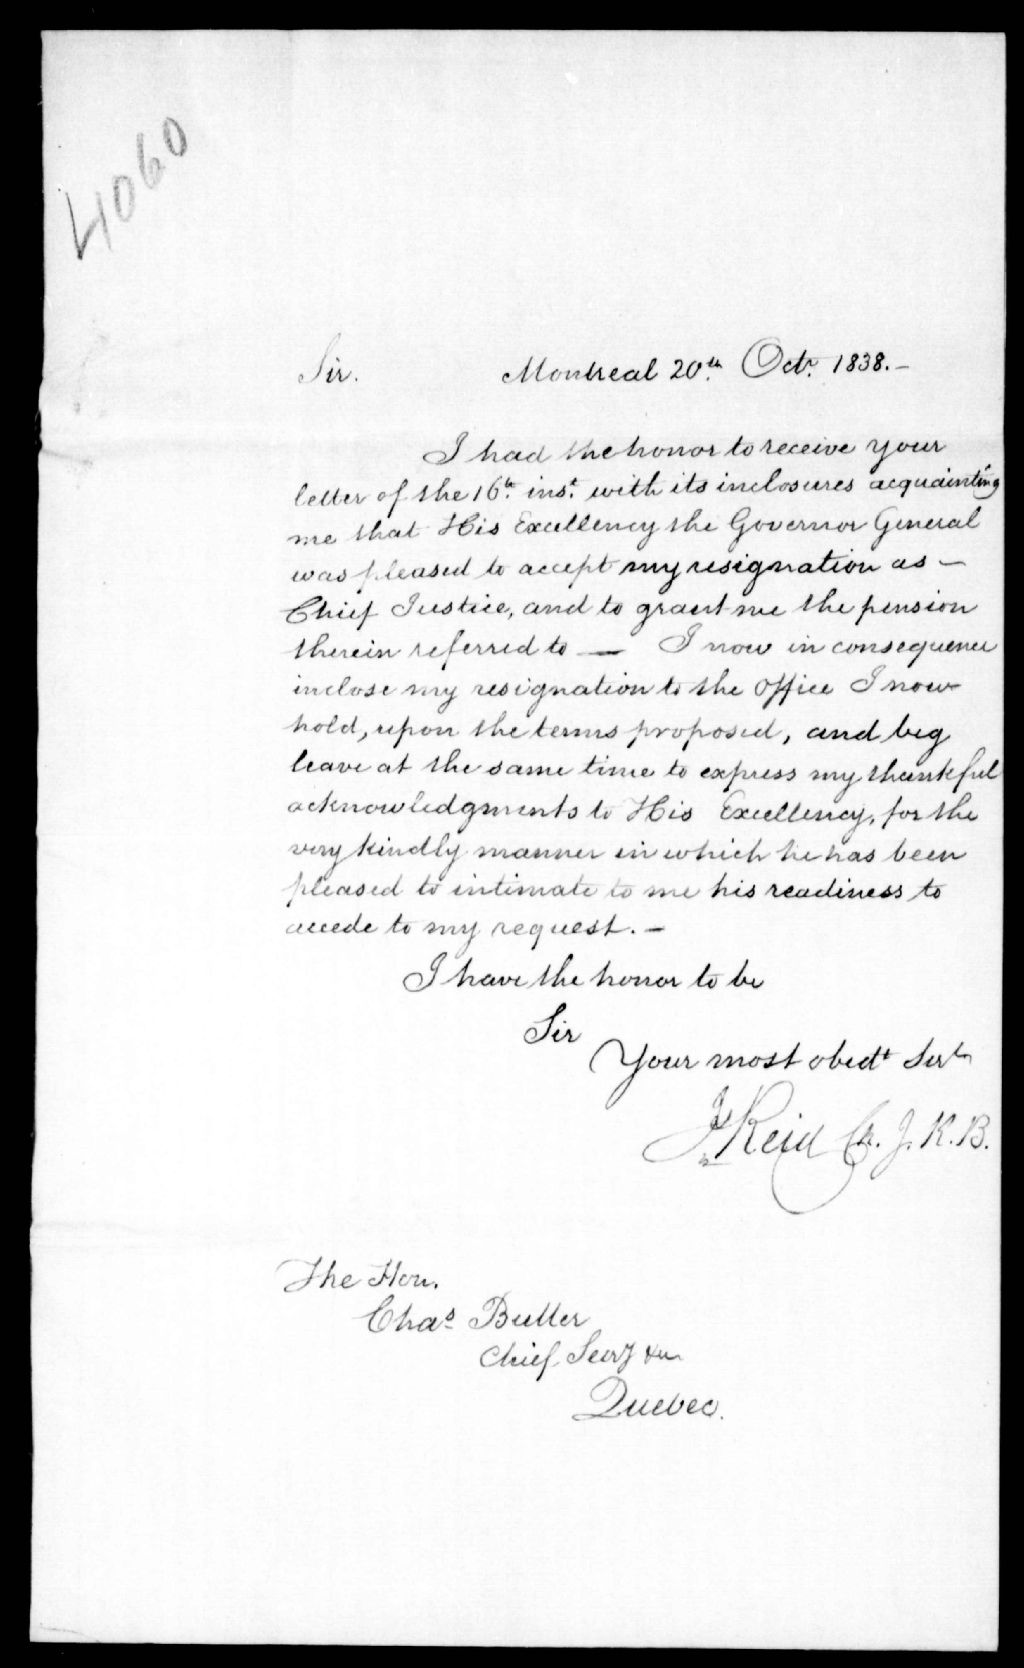 4060
Sir. Montreal 20th. Octr. 1838. —
I had the honor to receive your
letter of the 16th. inst. with its inclosures acquainting
me that His Excellency the Governor General
was pleased to accept my resignation as —
Chief Justice, and to grant me the pension
therein referred to — I now in consequence
inclose my resignation to the office I now
hold, upon the terms proposed, and beg
leave at the same time to express my thankful
acknowledgments to His Excellency, for the
very kindly manner in which he has been
pleased to intimate to me his readiness to
accede to my request. —
I have the honor to be
Sir
Your most obedt Servt
J Reid Ch. J. K. B.
The Hon.
Chas Buller
Chief Secry &c
Quebec.